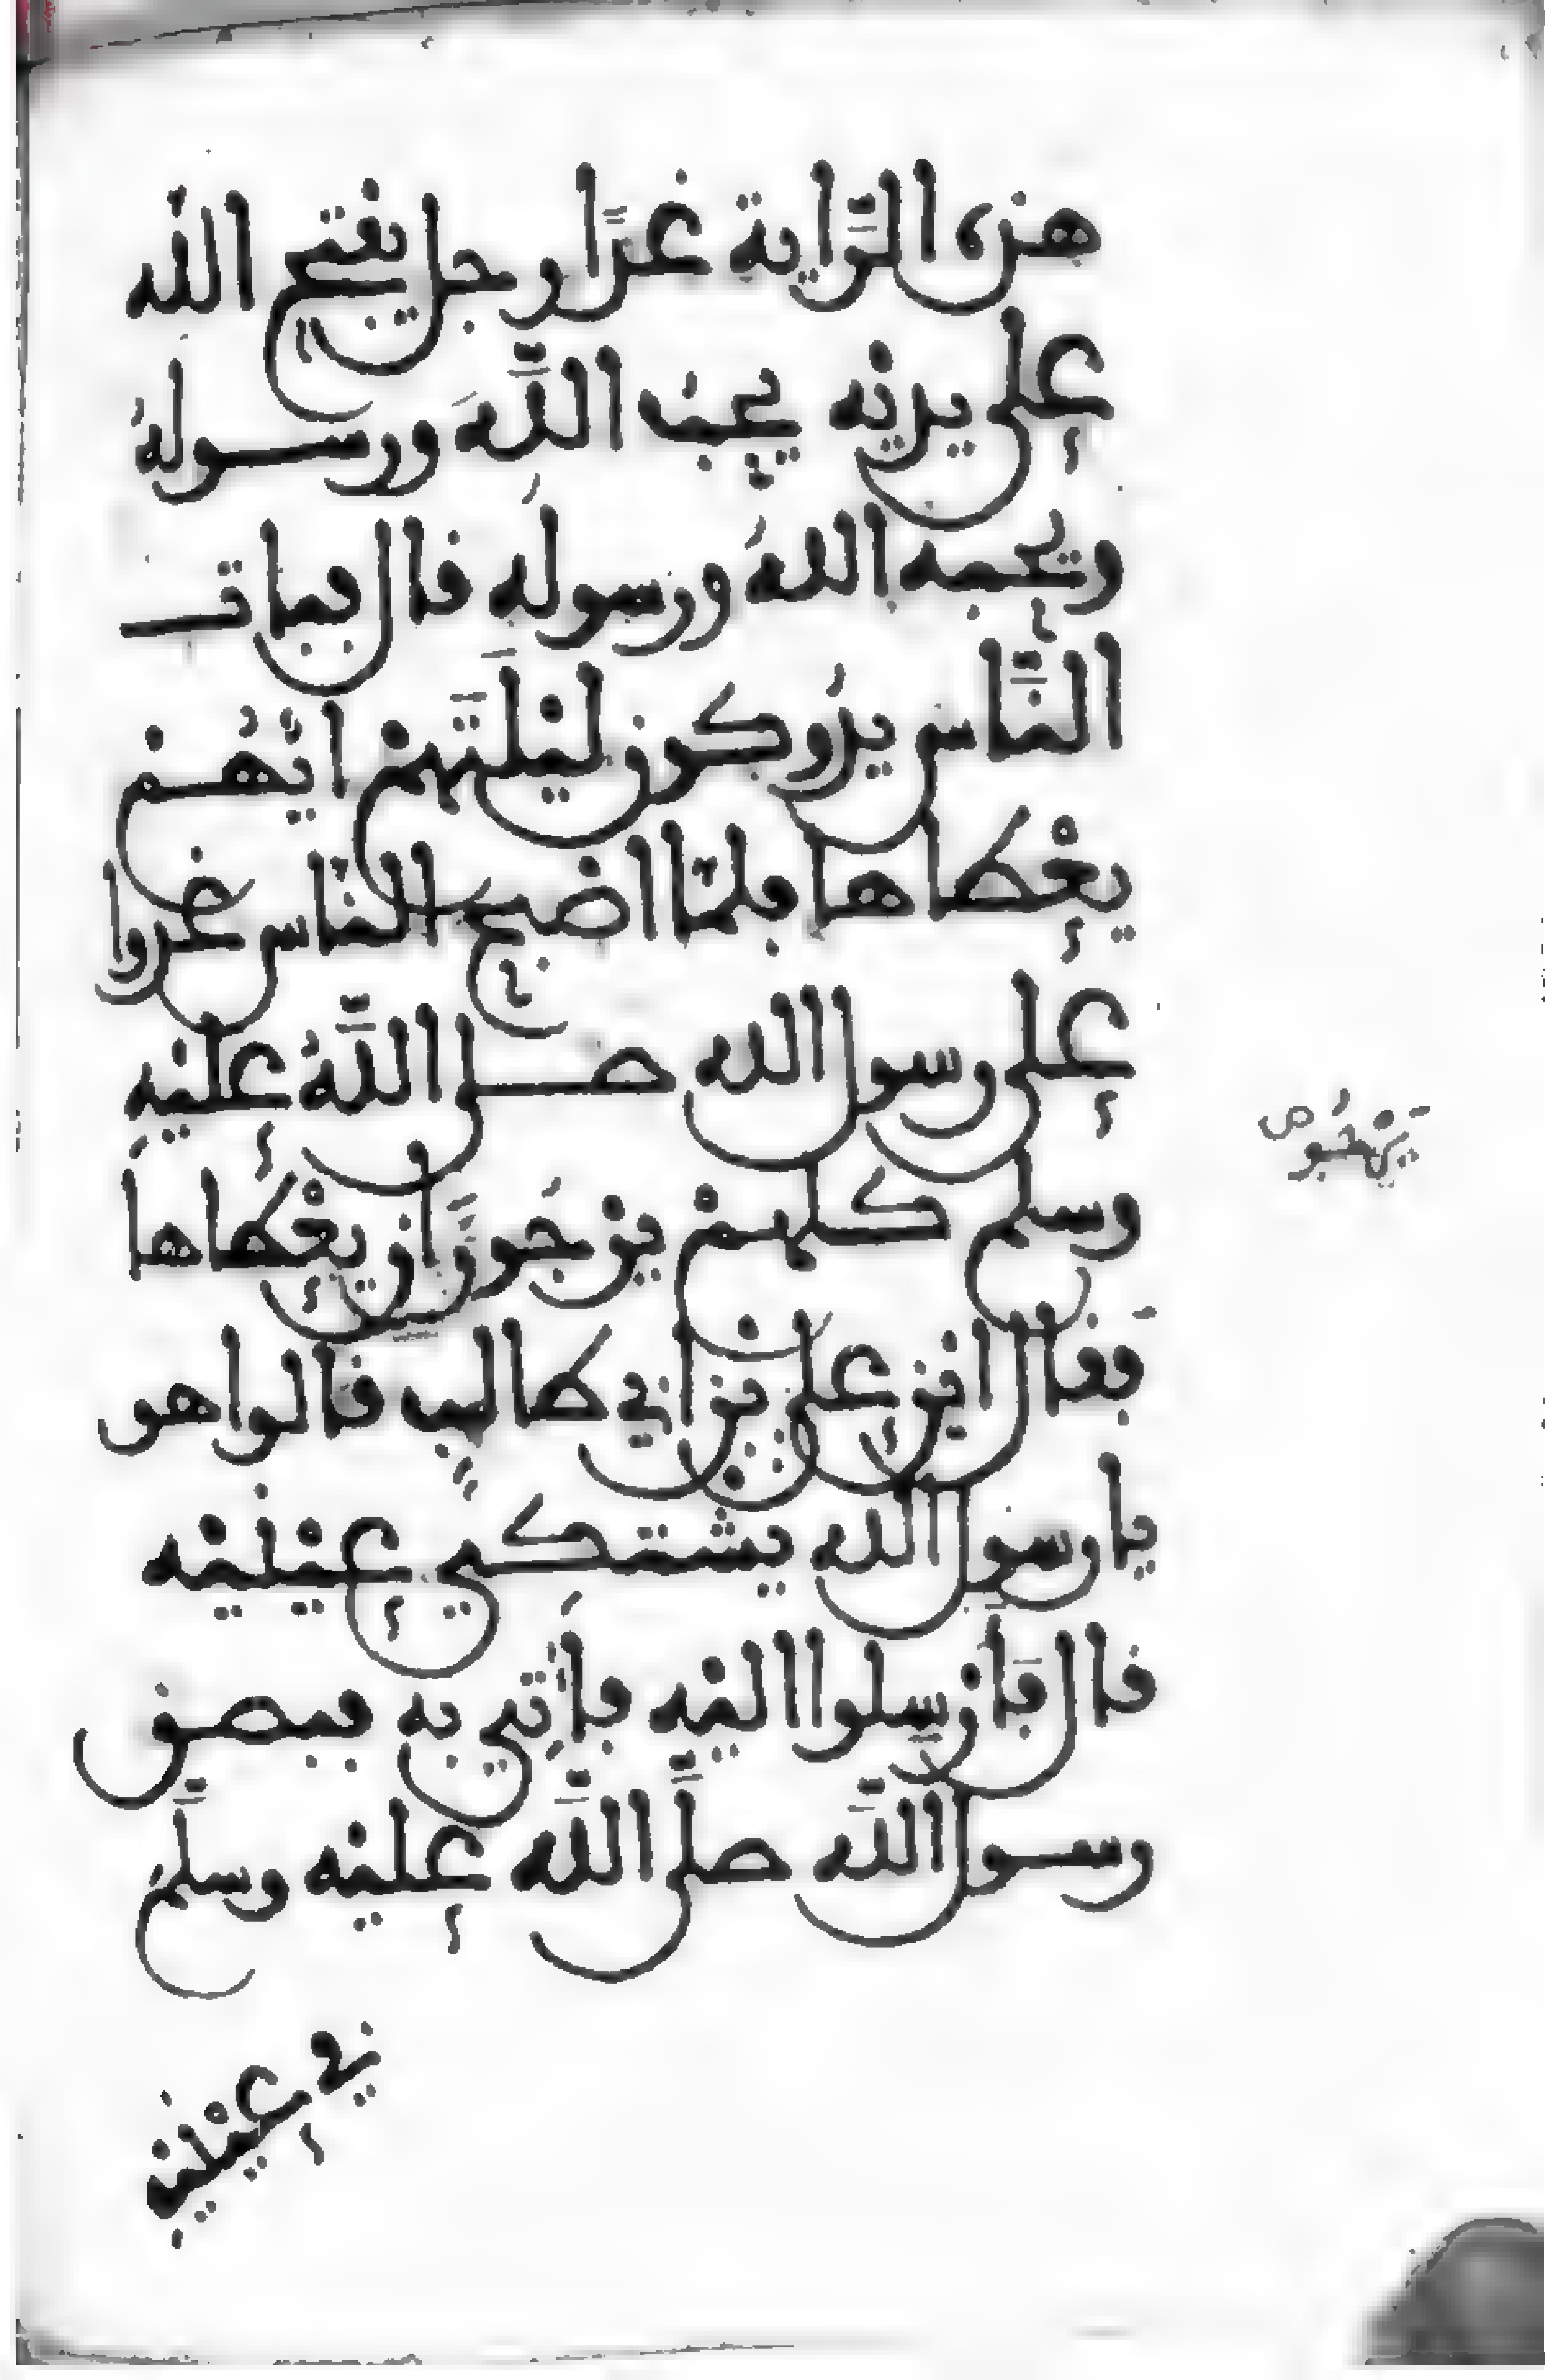 هذه الرَّاية غدًا رجل يفتح الله
على يديه يحبُ اللَّهَ ورسولهُ
ويحبه اللهُ ورسولُه قال فبات
النَّاس يدُوكون لَيْلَتَهمْ ايُّهُمْ
يعْطاها فلمّا اصْبح النّاس غدوا
على رسول الله صلى اللَّهُ عليْهِ
وسلم كلهمْ يرْجُونَ ان يعْطاها
فَقال ايْن على بْن ابي طالبٍ قالوا هو
يا رسول الله يشتكي عيْنيْه
قال فَأرْسلوا اليْه فأُتِي به فبصق
رسول اللَّه صلَّى اللَّه عليْه وسلَّمْ
في عيْنيْهِ